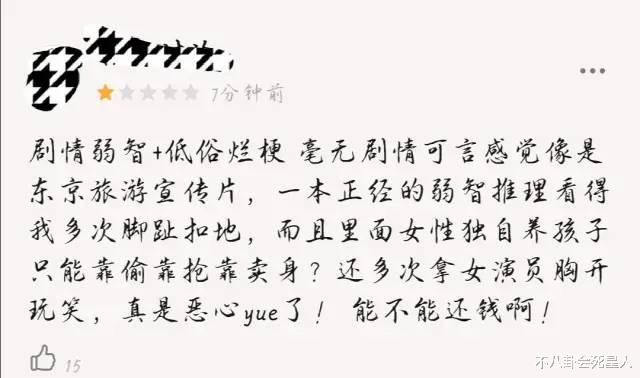 7分钟前
剧情弱智+低俗烂梗 毫无剧情可言感觉像是
东京旅游宣传片，一本正经的弱智推理看得
我多次脚趾扣地，而且里面女性独自养孩子
只能靠偷靠抢靠卖身？还多次拿女演员胸开
玩笑，真是恶心yue了！ 能不能还钱啊！
15
不八卦会死星人